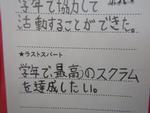 学年で協力して
活動することができた。
★ラストスパート
学年で、最高のスクラム
を達成したい。